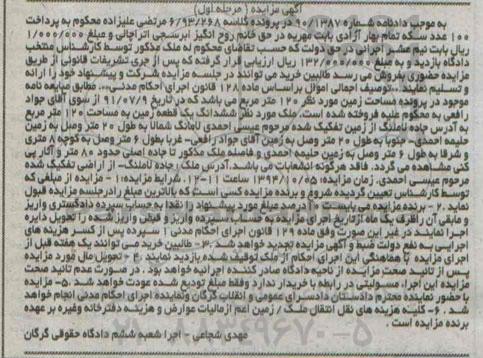 آگهی مزایده (مرحله اول)
به موجب دادنامه شماره ۹۰/۱۳۸۷ در پرونده کلاسه ۶/۹۳/۲۶۸ مرتضی علیزاده محکوم به پرداخت
۱۰۰ عدد سکه تمام بهار آزادی بابت مهریه در حق خانم روح انگیز ابرسجی اتراچالی و مبلغ ۱/۰۰۰/۰۰۰
ریال بابت نیم عشر اجرائی در حق دولت که حسب تقاضای محکوم له ملک مذکور توسط کارشناس منتخب
دادگاه بازدید و به مبلغ ۱۳۲/۰۰۰/۰۰۰ ریال ارزیابی قرار گرفته که پس از جری تشریفات قانونی از طریق
مزایده حضوری بفروش می رسد طالبین خرید می توانند در جلسه مزایده شرکت و پیشنهاد خود را ارائه
و تسلیم نمایند ...توصیف اجمالی اموال براساس ماده ۱۲۸ قانون اجرای احکام مدنی... مطابق مبایعه نامه
موجود در پرونده مساحت زمین مورد نظر ۱۲۰ متر مربع می باشد که در تاریخ ۹۱/۰۷/۹ از سوی آقای جواد
رافعی به محکوم علیه فروخته شده است. ملک مورد نظر ششدانگ یک قطعه زمین به مساحت ۱۲۰ متر مربع
به آدرس جاده تاملنگ از زمین تفکیک شده مرحوم عیسی احمدی تامانگ شمالا به طول ۲۰ متر وصل به زمین
حلیمه احمدی- جنوبا به طول ۲۰ متر وصل به زمین آقای جواد رافعی- غربا بطول ۶ متر وصل به کوچه ۸ متری
و شرقا به طول ۶ متر وصل به زمین حلیمه احمدی و فاصله ملک مذکور تا جاده اصلی حدود ۸۰ متر و آثار پی
کنی مشاهده می گردد. فاقد هرگونه انشعابات می باشد. آدرس ملک: جاده تاملنگ- از اراضی تفکیک شده
مرحوم عیسی احمدی. زمان مزایده ۱۳۹۴/۱۰/۰۵ ساعت ۱۱-۱۲. شرایط مزایده: ۱- مزایده از مبلغی که
توسط کارشناس تعیین گردیده شروع و برنده مزایده کسی است که بالاترین مبلغ را در جلسه مزایده قبول
نماید .۲- برنده مزایده می بایست ۱۰ درصد مبلغ مورد پیشنهاد را نقدا به حساب سپرده دادگستری واریز
و مابقی آن را ظرف یک ماه از تاریخ اجرای مزایده به حساب سپرده واریز و قبض واریز شده را تحویل دایره
اجرا نمایند در غیر این صورت وفق ماده ۱۲۹ قانون اجرای احکام مدنی ۱۰ سپرده پس از کسر هزینه های
اجرایی به نفع دولت ضبط و آگهی مزایده تجدید خواهد شد .۳- طالبین خرید می توانند یک هفته قبل از
اجرای مزایده با هماهنگی این اجرای احکام از ملک توقیف شده بازدید نمایند .۴- تحویل مال مورد مزایده
پس از تائید صحت مزایده از ناحیه دادگاه صادر کننده اجرائیه خواهد بود . در صورت عدم تائید صحت
مزایده این اجراء مسئولیتی در رابطه با خریدار ندارد وفقط مبلغ تودیع شده عودت خواهد شد .۵- مزایده
با حضور نماینده محترم دادستان دادسرای عمومی و انقلاب گرگان ونماینده اجرای احکام مدنی انجام خواهد
شد . ۶- کلیه هزینه های نقل انتقال ملک / زمین اعم ازمالیات عوارض و هزینه دفترخانه وغیره بر عهده
برنده مزایده است .
مهدی شجاعی - اجرا شعبه ششم دادگاه حقوقی گرگان